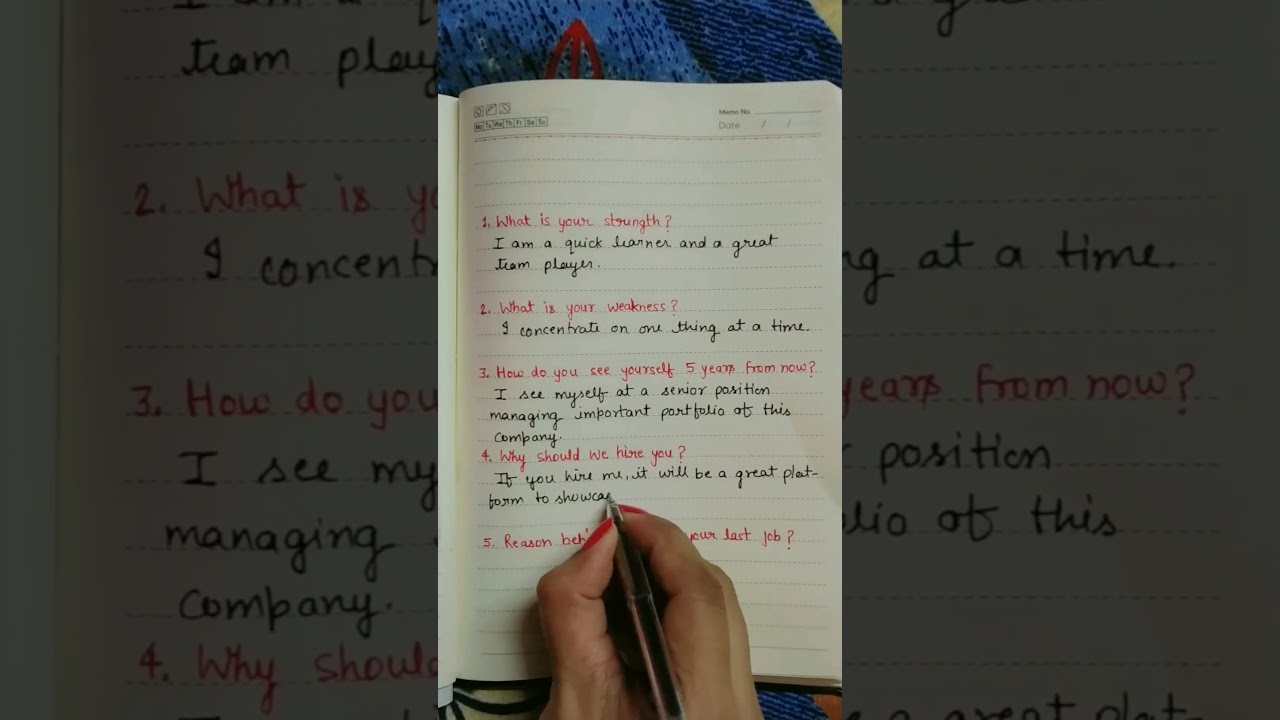 Memo No.
Mo Tu We Th Fr Sa Su
Date / /
1. What is your strength?
I am a quick learner and a great
team player.
2. What is your weakness?
I concentrate on one thing at a time.
3. How do you see yourself 5 years from now?
I see myself at a senior position
managing important portfolio of this
company.
4. Why should we hire you?
If you hire me, it will be a great plat-
form to showcas
5. Reason beh your last job?